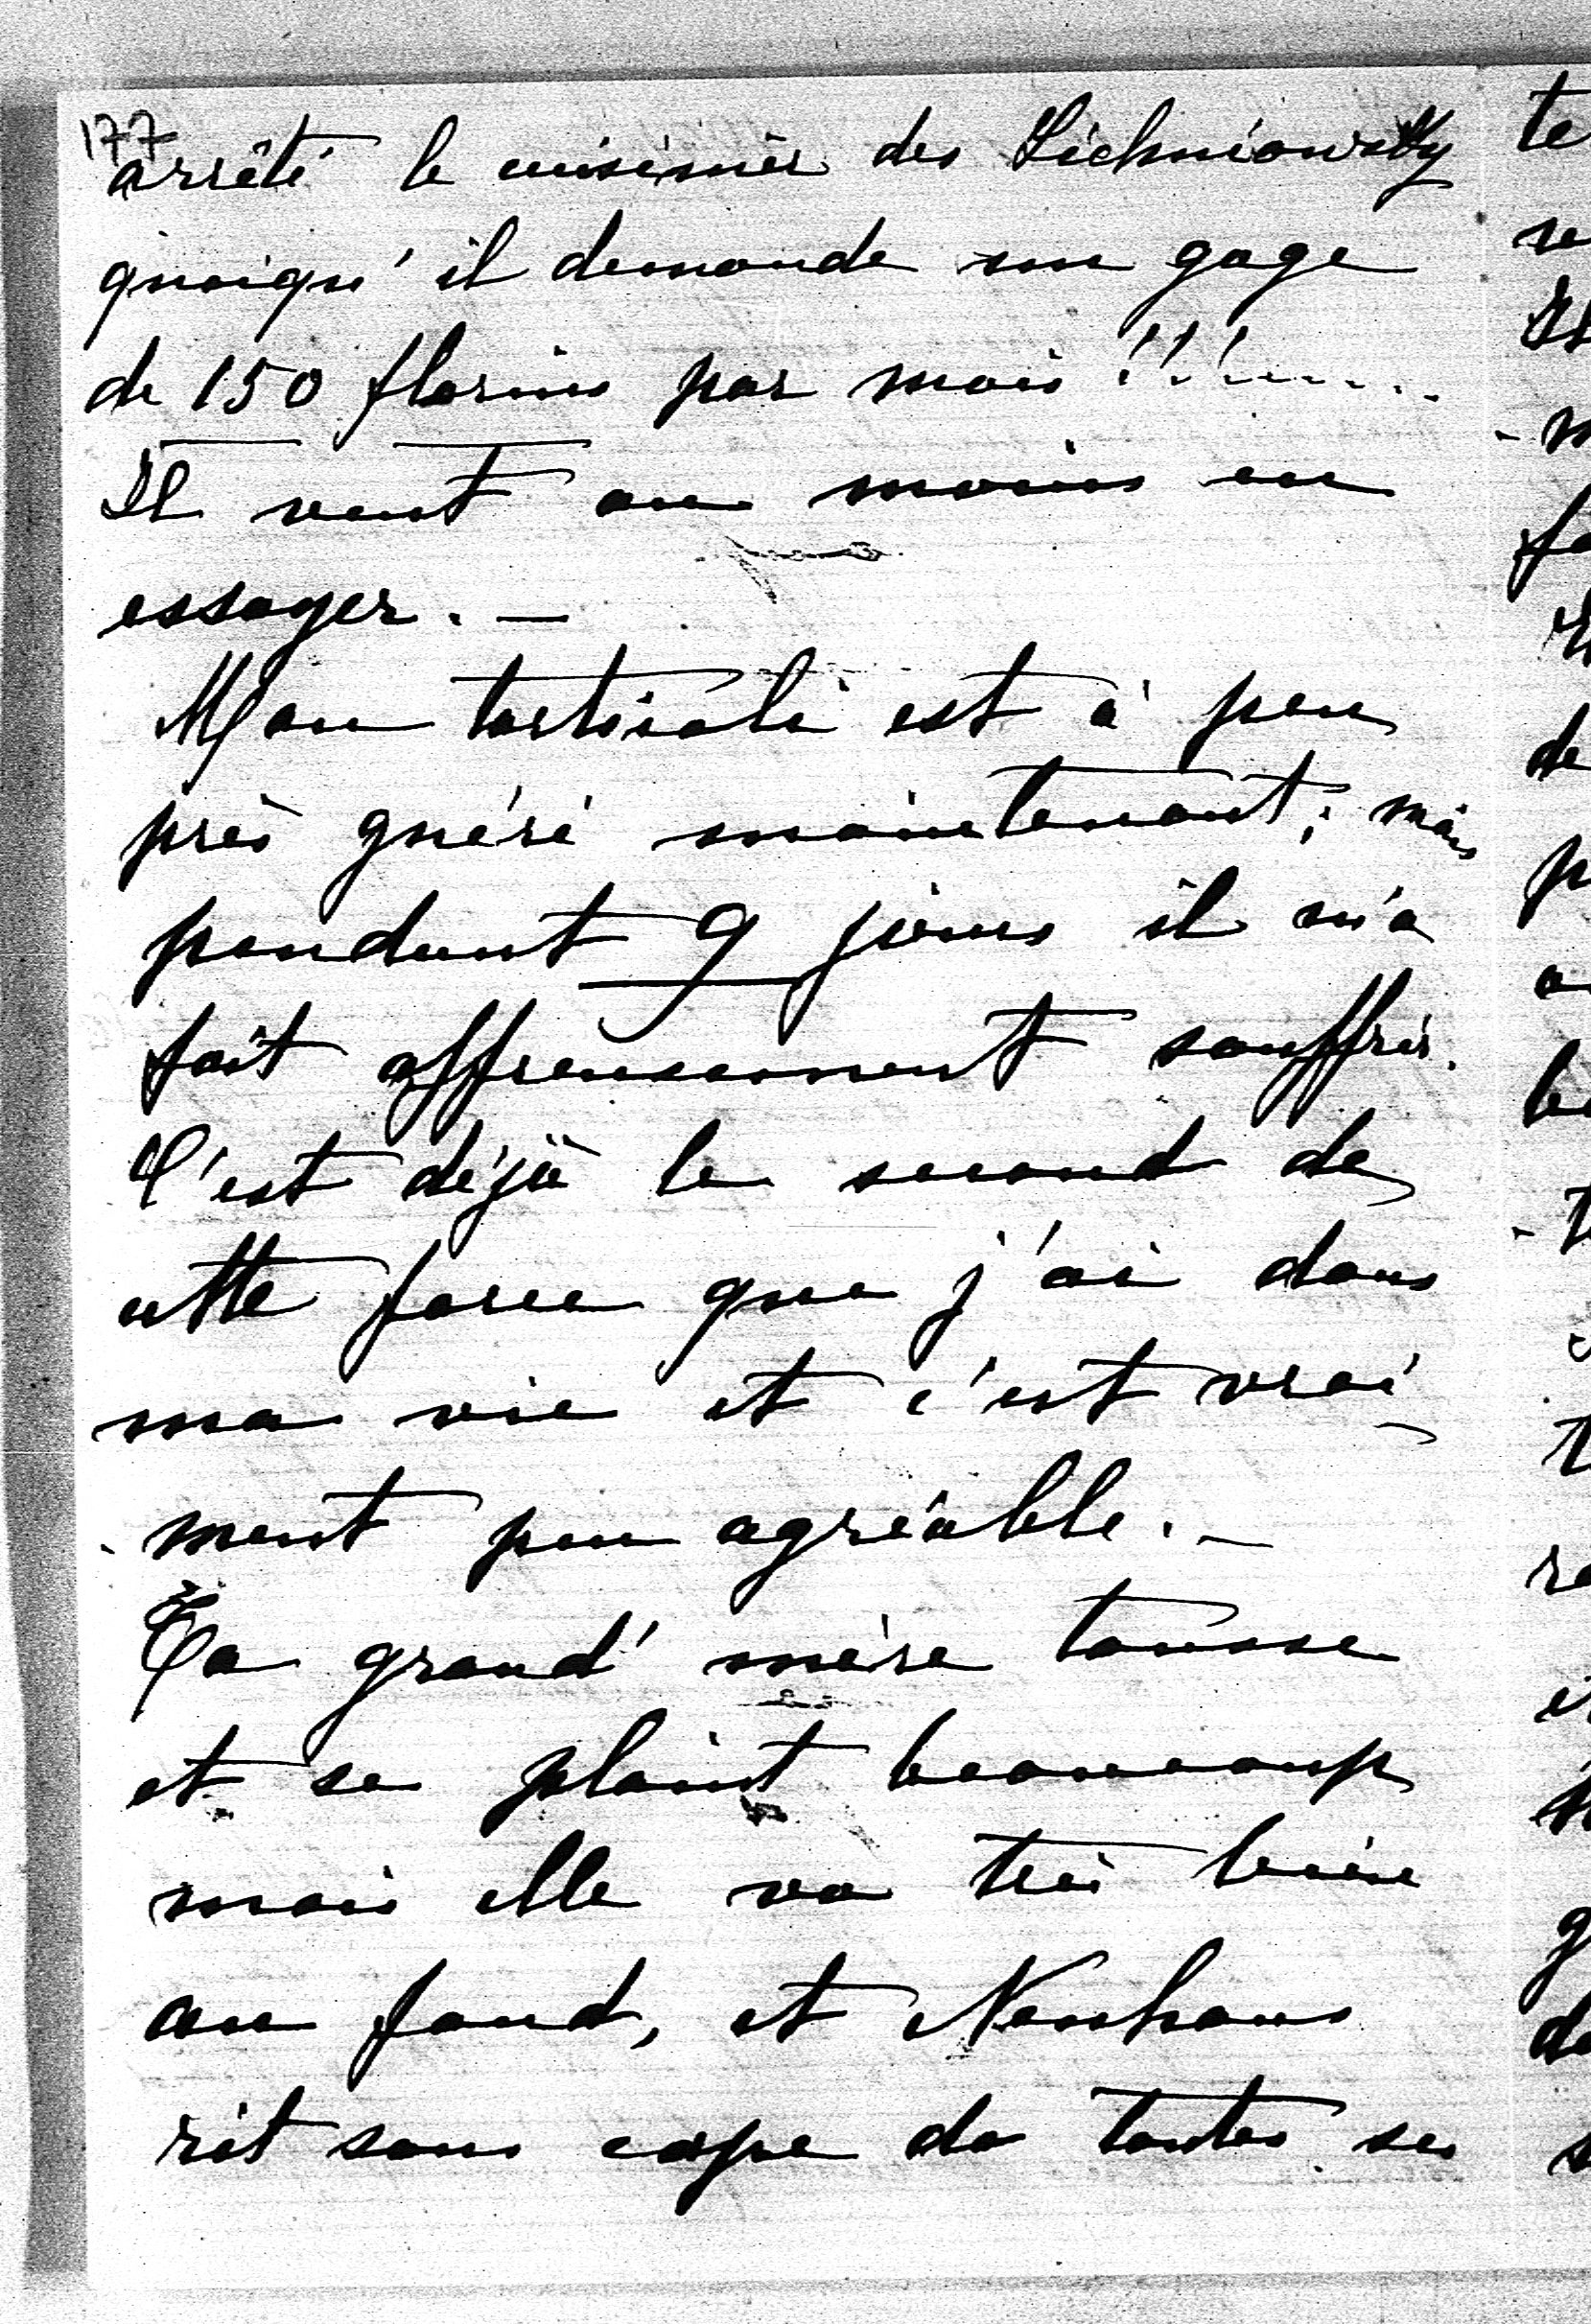 177
arrêté le cuisinier des Lichniowsky
quoiqu'il demande un gage
de 150 florins par mois !!!.....
Il veut au moins en
essayer. —
Mon torticolis est à peu
près guéri maintenant; mais
pendant 9 jours il m'a
fait affreusement souffrir.
C'est déjà le second de
cette force que j'ai dans
ma vie et c'est vrai-
-ment peu agréable. —
Ta grand'mère tousse
et se plaint beaucoup
mais elle va très bien
au fond, et Neuhaus
rit sous cape de toutes ses